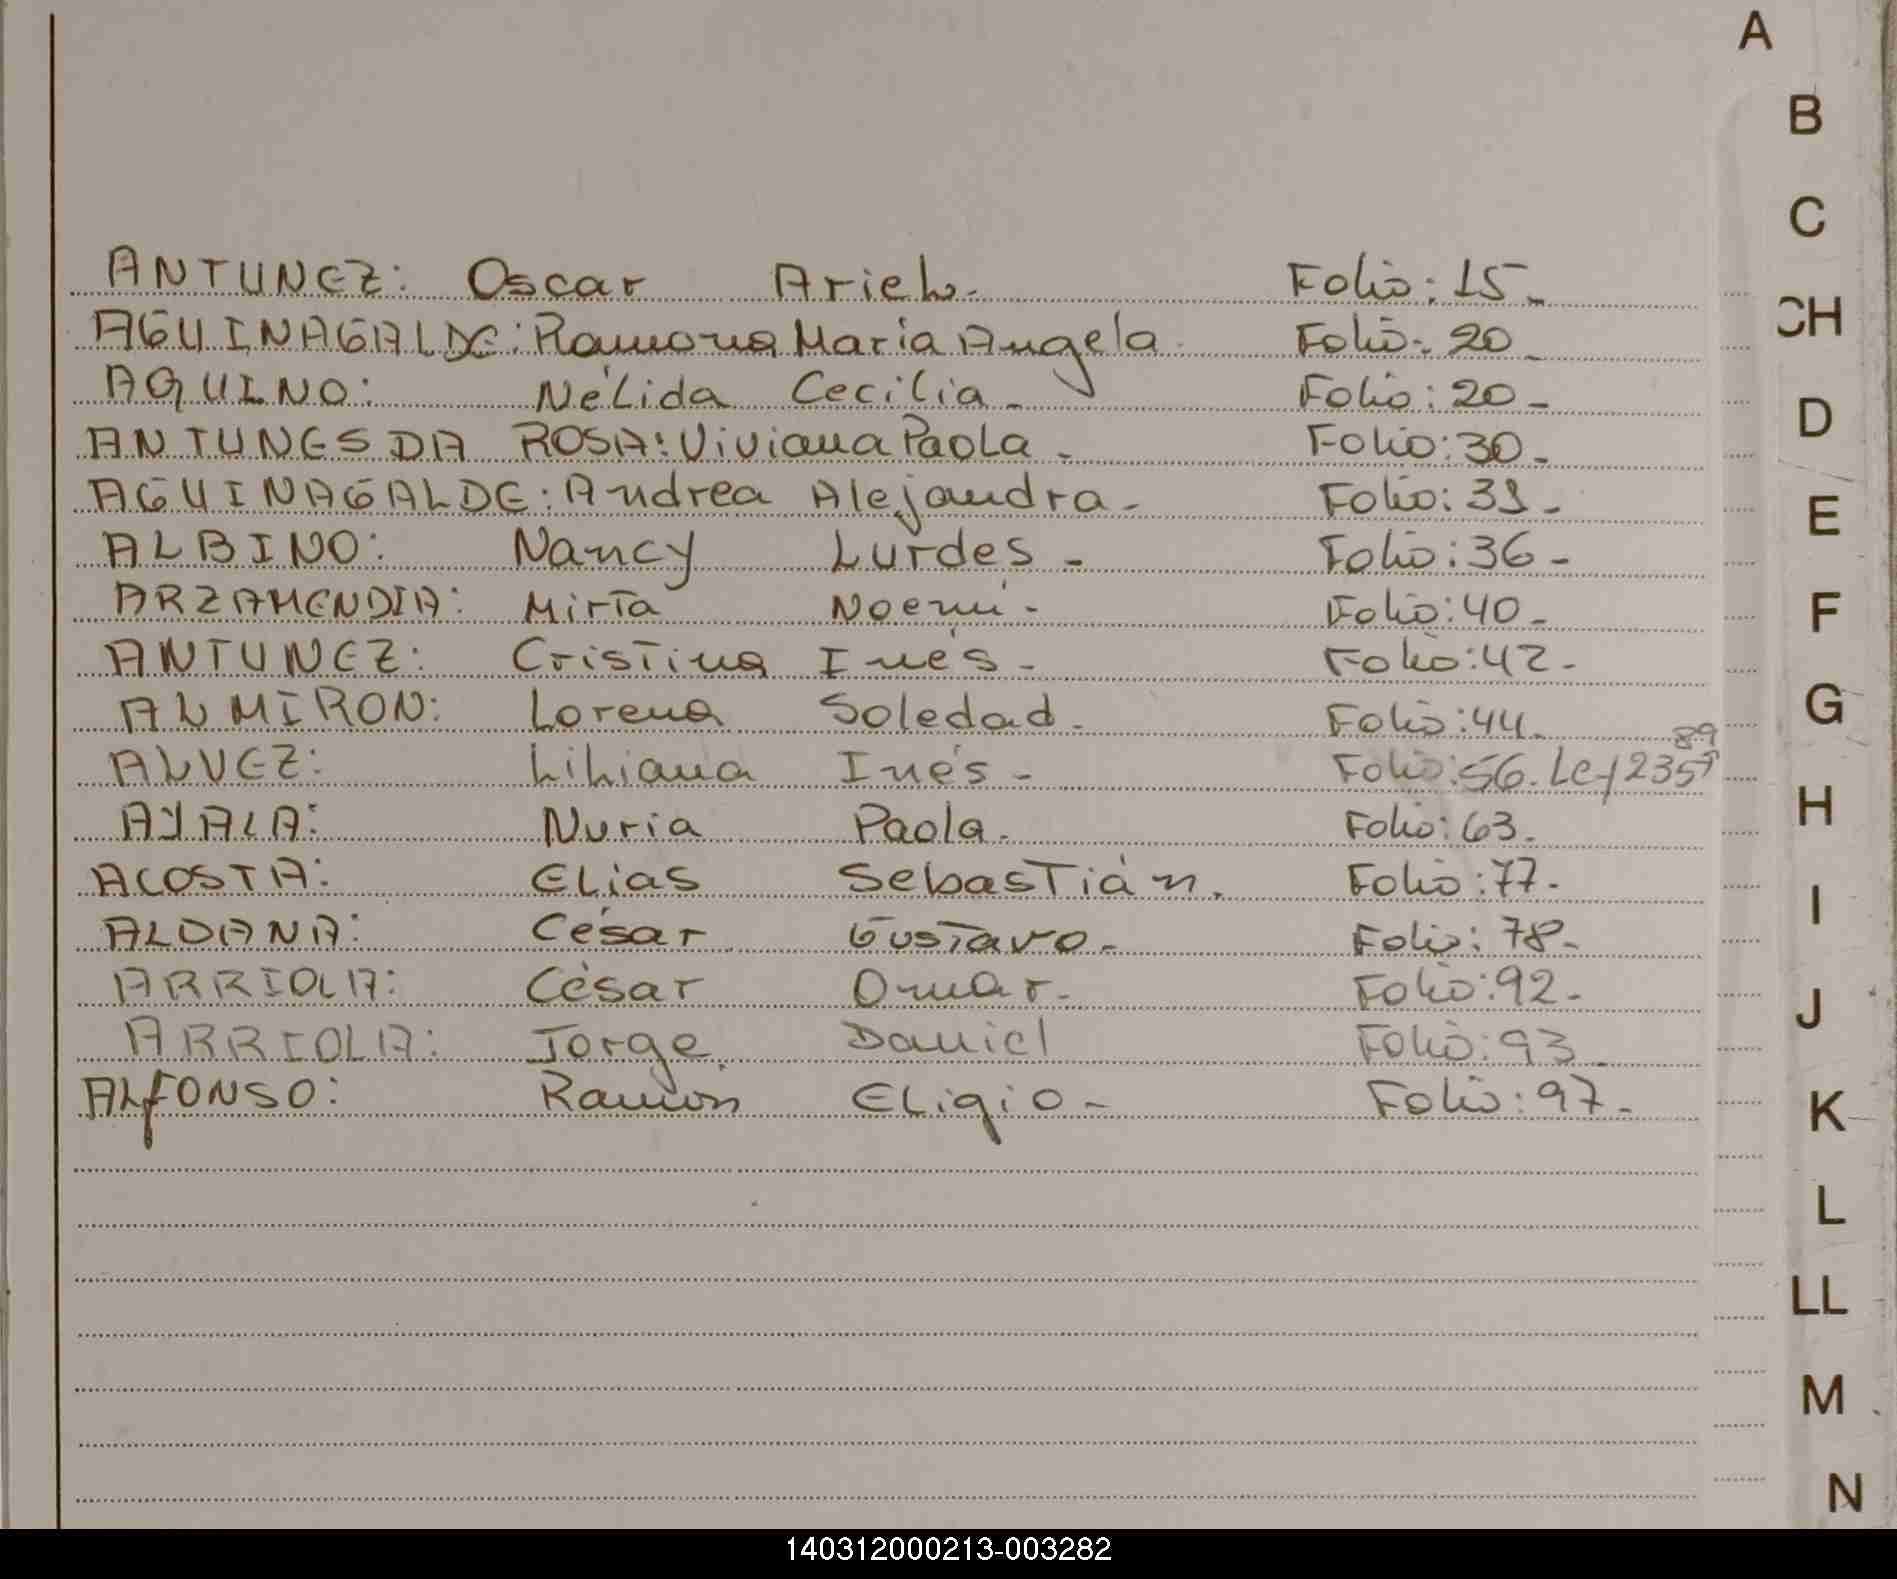 A
B
C
CH
D
E
F
G
H
I
J
K
L
LL
M
N
ANTUNEZ: Oscar Ariel. Folio: 15.
AGUINAGALDE: Ramona Maria Angela Folio: 20
AQUINO: Nélida Cecilia. Folio: 20.
ANTUNES DA ROSA: Viviana Paola. Folio: 30.
AGUINAGALDE: Andrea Alejandra. Folio: 33.
ALBINO: Nancy Lurdes. Folio: 36.
ARZAMENDIA: Mirta Noemí. Folio: 40.
ANTUNEZ: Cristina Inés. Folio: 42.
ALMIRON: Lorena Soledad. Folio: 44.
ALVEZ: Liliana Inés. Folio: 56. Ley 235
AYALA: Nuria Paola. Folio: 63.
ACOSTA: Elias Sebastián. Folio: 77.
ALDANA: César Gustavo. Folio: 78.
ARRIOLA: César Omar. Folio: 92.
ARRIOLA: Jorge Daniel Folio: 93.
ALFONSO: Ramón Eligio. Folio: 97.
140312000213-003282